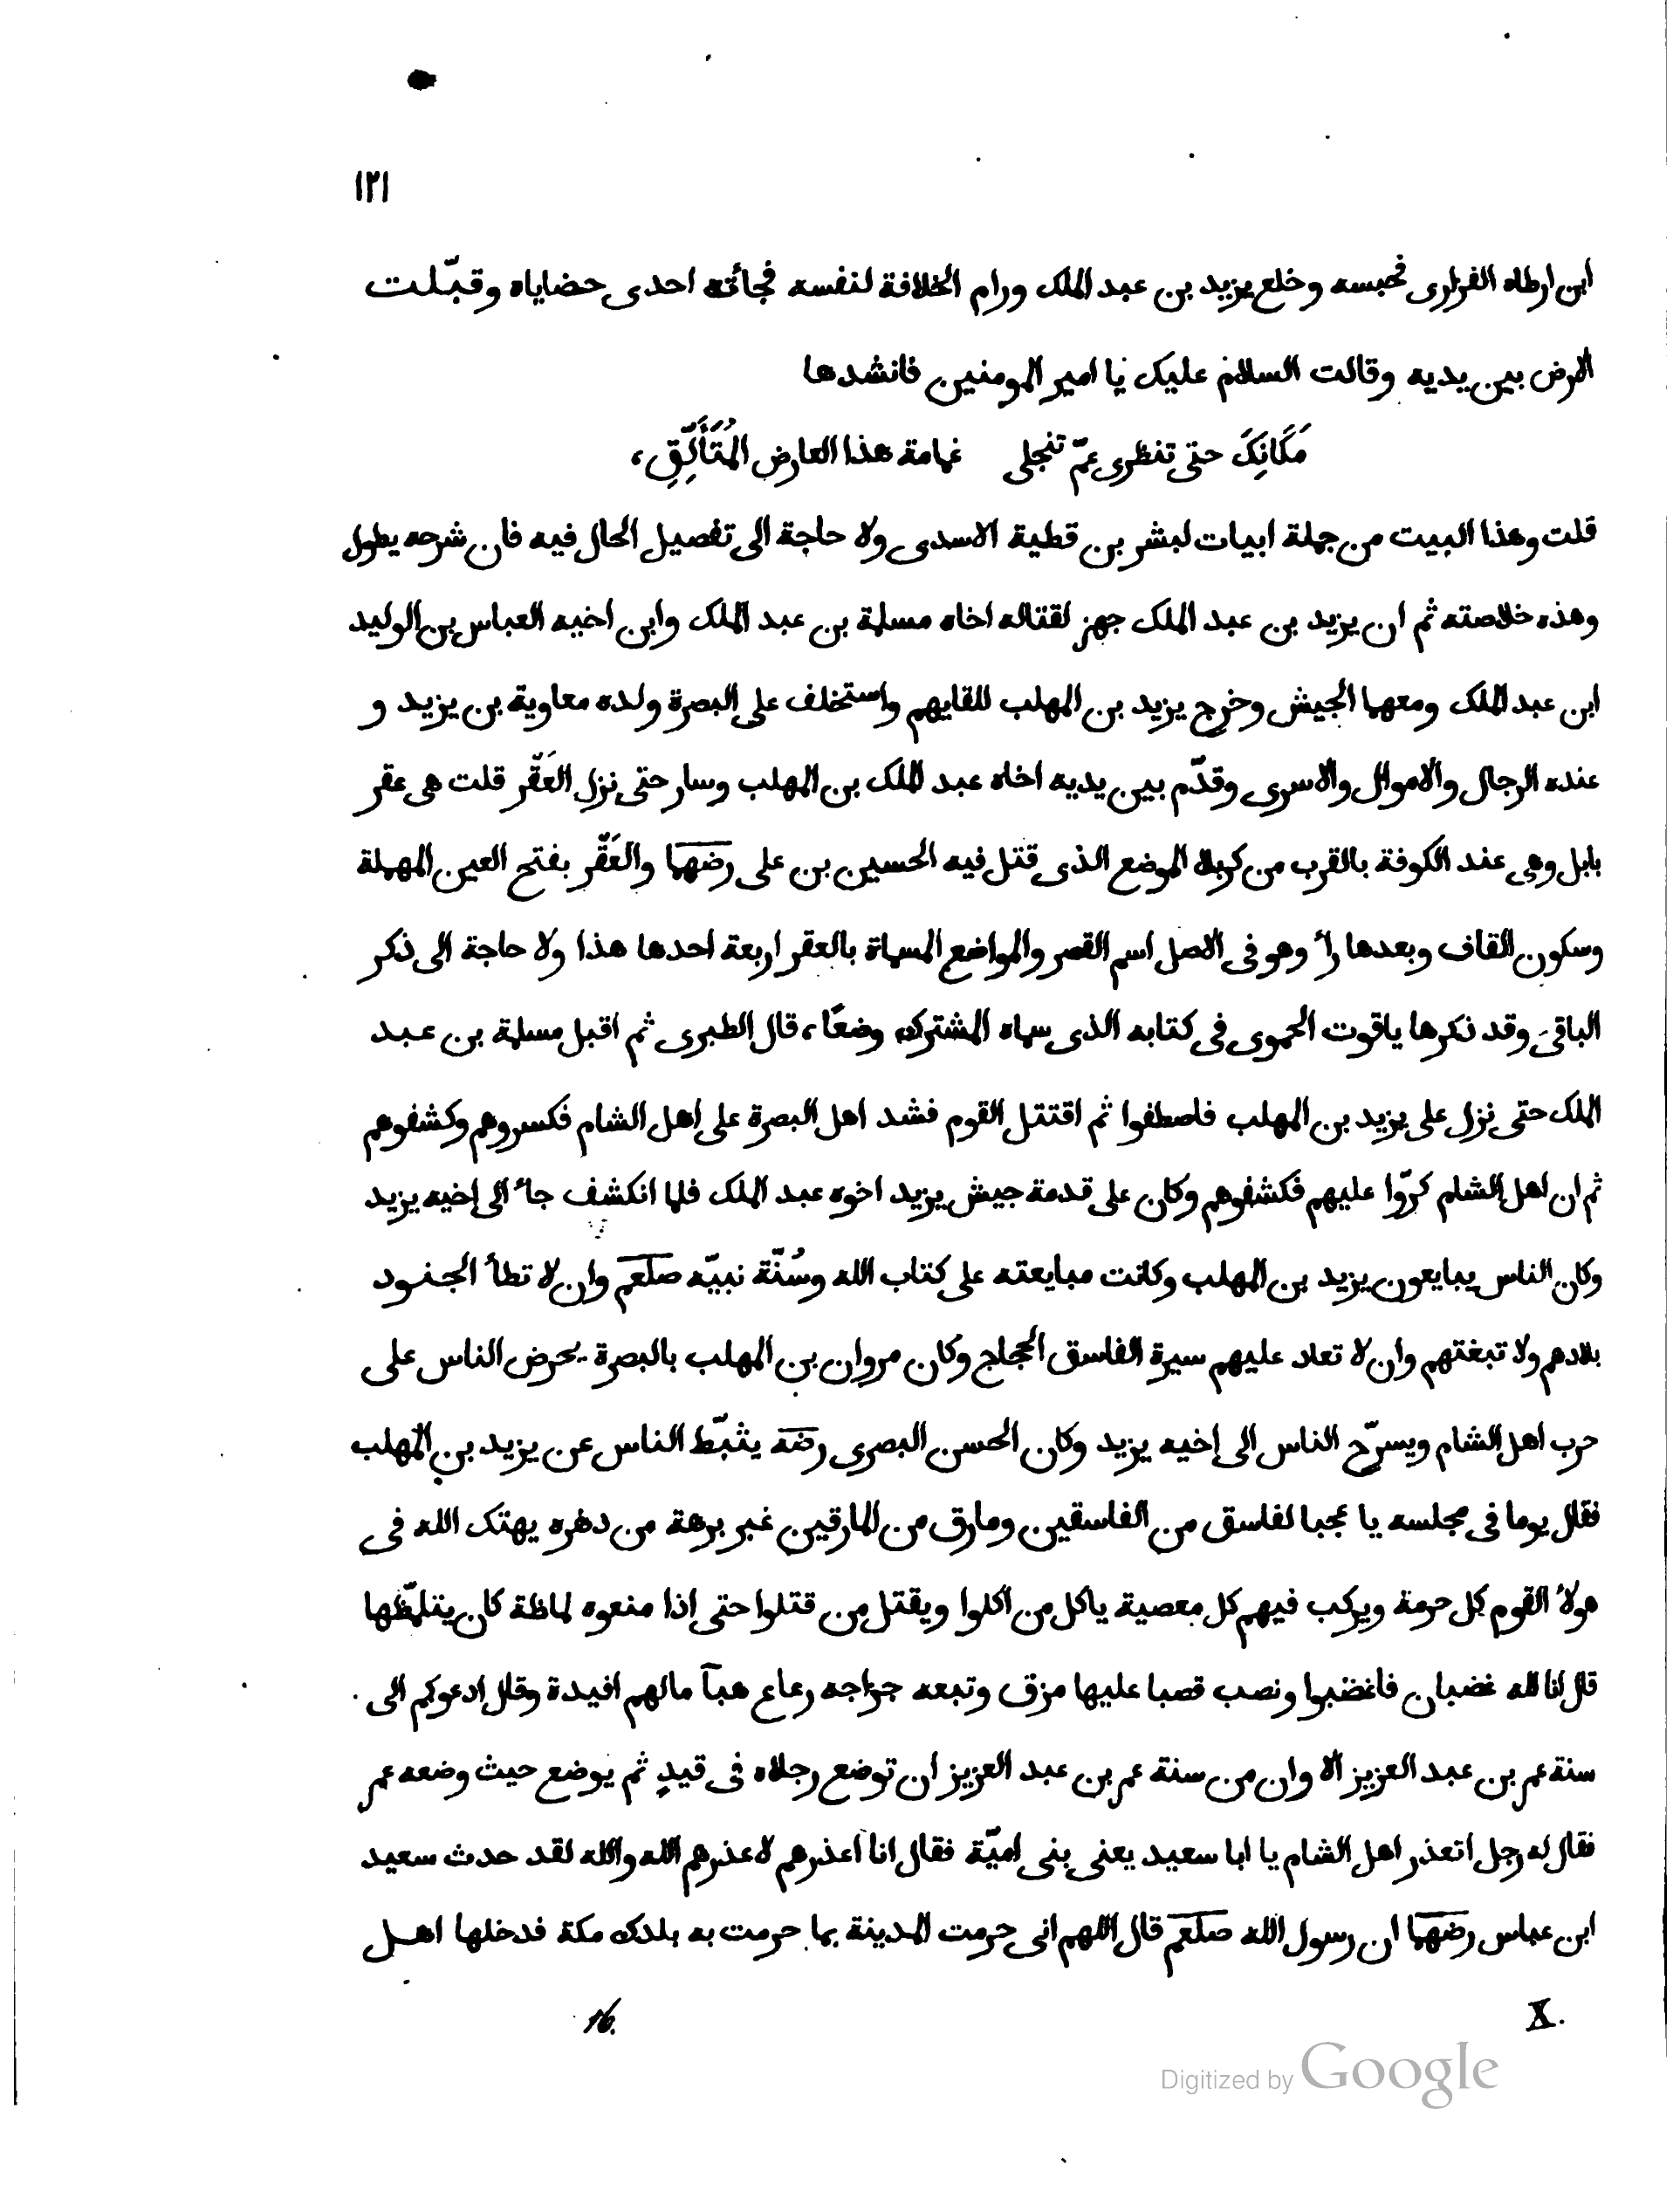 ١٢١
ابن ارطاه الفزارى فحبسه وخلع يزيد بن عبد الملك ورام الخلافة لنفسه فجائته احدى حضاياه وقبّلت
الارض بين يديه وقالت السلام عليك يا امير المومنين فانشدها
مَكَانَكَ حتى تنظرى عمّ تنجلى غمامة هذا العارض المُتَأَلِّقِ،
قلت وهذا البيت من جملة ابيات لبشر بن قطية الاسدى ولا حاجة الى تفصيل الحال فيه فان شرحه يطول
وهذه خلاصته ثم ان يزيد بن عبد الملك جهز لقتاله اخاه مسلمة بن عبد الملك وابن اخيه العباس بن الوليد
ابن عبد الملك ومعهما الجيش وخرج يزيد بن المهلب للقايهم واستخلف على البصرة ولده معاوية بن يزيد و
عنده الرجال والاموال والاسرى وقدّم بين يديه اخاه عبد الملك بن المهلب وسار حتى نزل العَقْر قلت هى عقر
بابل وهى عند الكوفة بالقرب من كربلا الموضع الذى قتل فيه الحسين بن على رضهما والعَقْر بفتح العين المهملة
وسكون القاف وبعدها رأ وهو فى الاصل اسم القصر والمواضع المسماة بالعقر اربعة احدها هذا ولا حاجة الى ذكر
الباقى وقد ذكرها ياقوت الحموى فى كتابه الذى سماه المشترك وضعًا، قال الطبرى ثم اقبل مسلمة بن عبد
الملك حتى نزل على يزيد بن المهلب فاصطفوا ثم اقتتل القوم فشد اهل البصرة على اهل الشام فكسروهم وكشفوهم
ثم ان اهل الشام كرّوا عليهم فكشفوهم وكان على قدمة جيش يزيد اخوه عبد الملك فلما انكشف جأ الى اخيه يزيد
وكان الناس يبايعون يزيد بن المهلب وكانت مبايعته على كتاب الله وسُنّة نبيّه صلعم وان لا تطأ الجنود
بلادهم ولا تبغتهم وان لا تعاد عليهم سيرة الفاسق الحجاج وكان مروان بن المهلب بالبصرة يحرض الناس على
حرب اهل الشام ويسرّح الناس الى اخيه يزيد وكان الحسن البصرى رضه يثبّط الناس عن يزيد بن المهلب
فقال يوما فى مجلسه يا عجبا لفاسق من الفاسقين ومارق من المارقين غبر برهة من دهره يهتك الله فى
هولأ القوم كل حرمة ويركب فيهم كل معصية ياكل من اكلوا ويقتل من قتلوا حتى اذا منعوه لماظة كان يتلمّظها
قال انا لله غضبان فاغضبوا ونصب قصبا عليها مزق وتبعه جراجه رعاع هبآ مالهم افيدة وقال ادعوكم الى
سنة عمر بن عبد العزيز الا وان من سنة عمر بن عبد العزيز ان توضع رجلاه فى قيدٍ ثم يوضع حيث وضعه عمر
فقال له رجل اتعذر اهل الشام يا ابا سعيد يعنى بنى اميّة فقال انا اعذرهم لا عذرهم الله والله لقد حدث سعيد
ابن عباس رضهما ان رسول الله صلعم قال اللهم انى حرمت المدينة بما حرمت به بلدك مكة فدخلها اهل
X. 16.
Digitized by Google